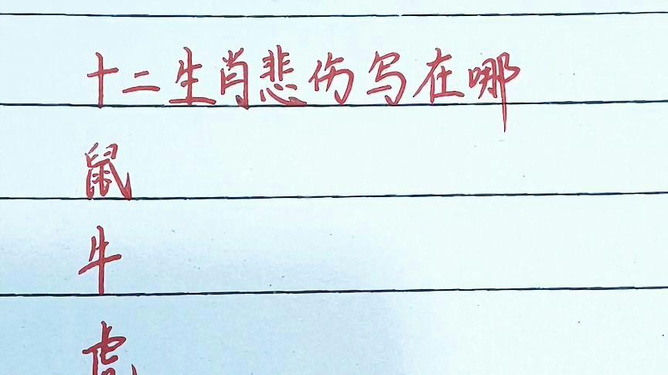 十二生肖悲伤写在哪
鼠
牛
虎